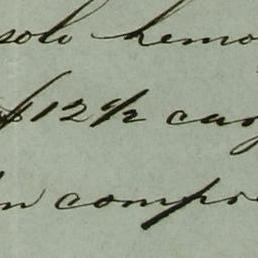 solo hemo
$12 4/2 cuy
n compr